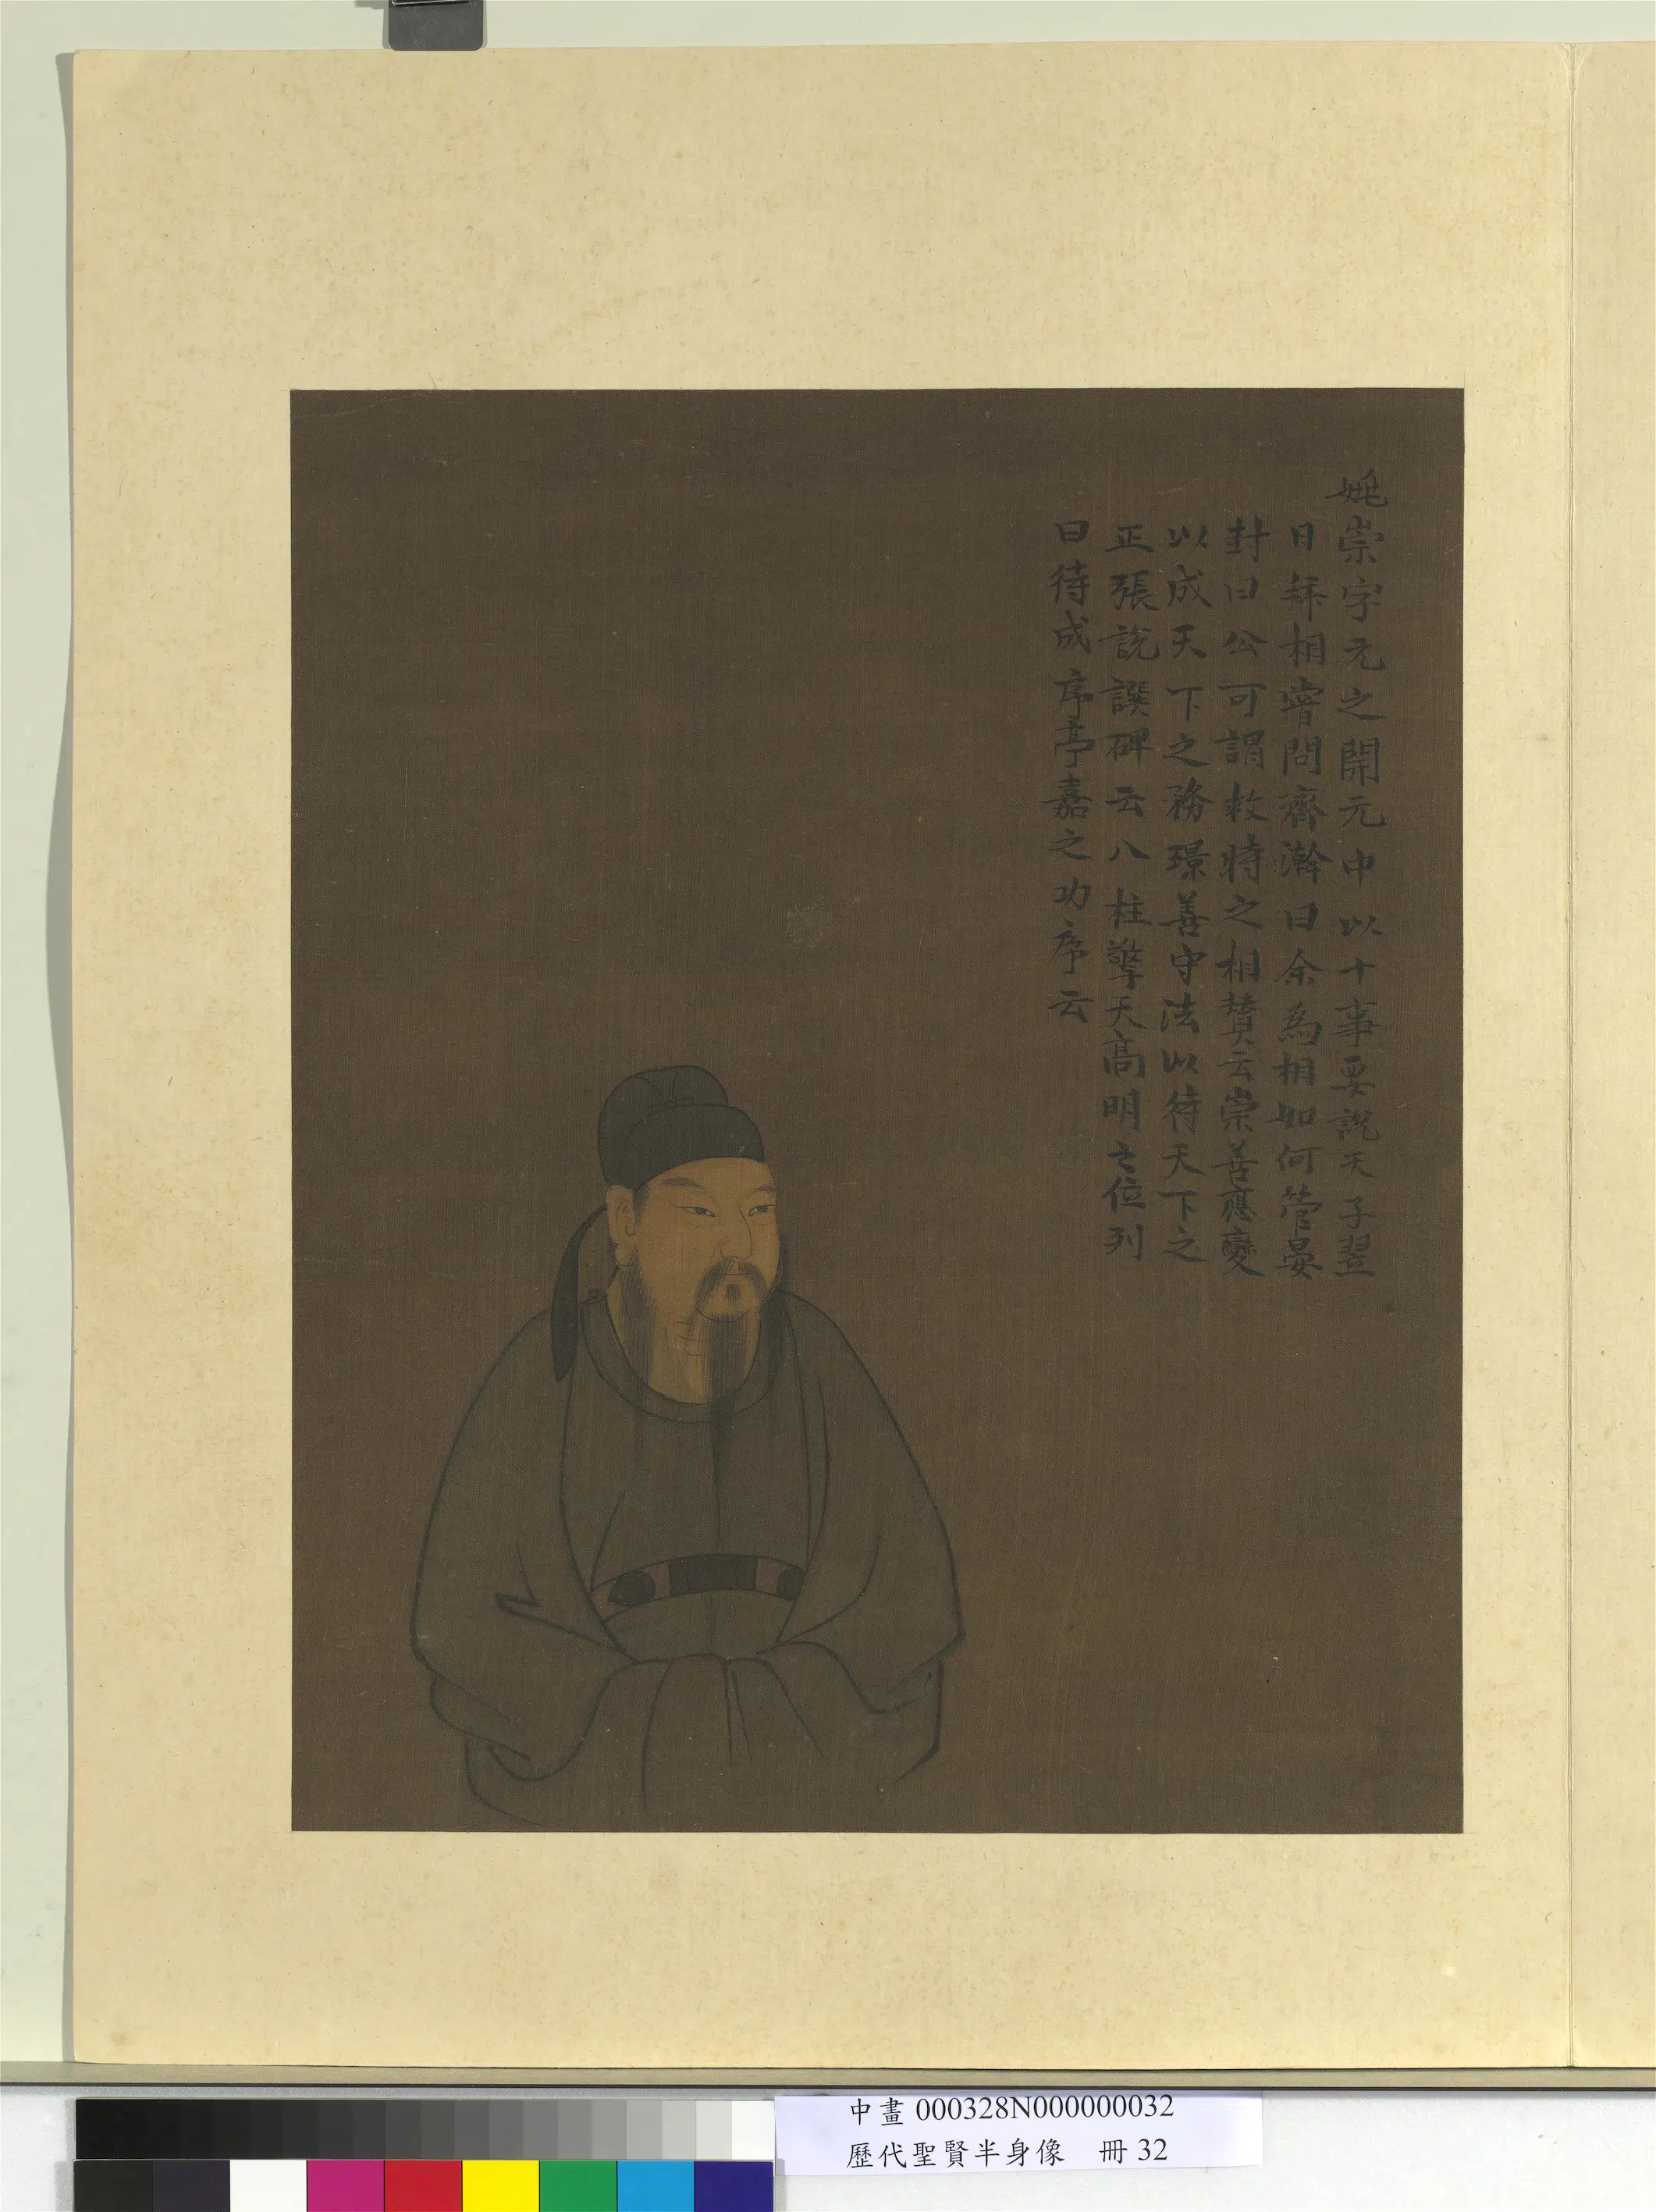 姚崇字元之開元中以十事要說天子翌
日拜相嘗問齊澣曰余為相如何管晏
封曰公可謂救時之相贊云崇善應變
以成天下之務璟善守法以待天下之
正張說譔碑云八柱擎天高明之位列
曰待成序亭嘉之功序云
中畫000328N000000032
歷代聖賢半身像 冊32